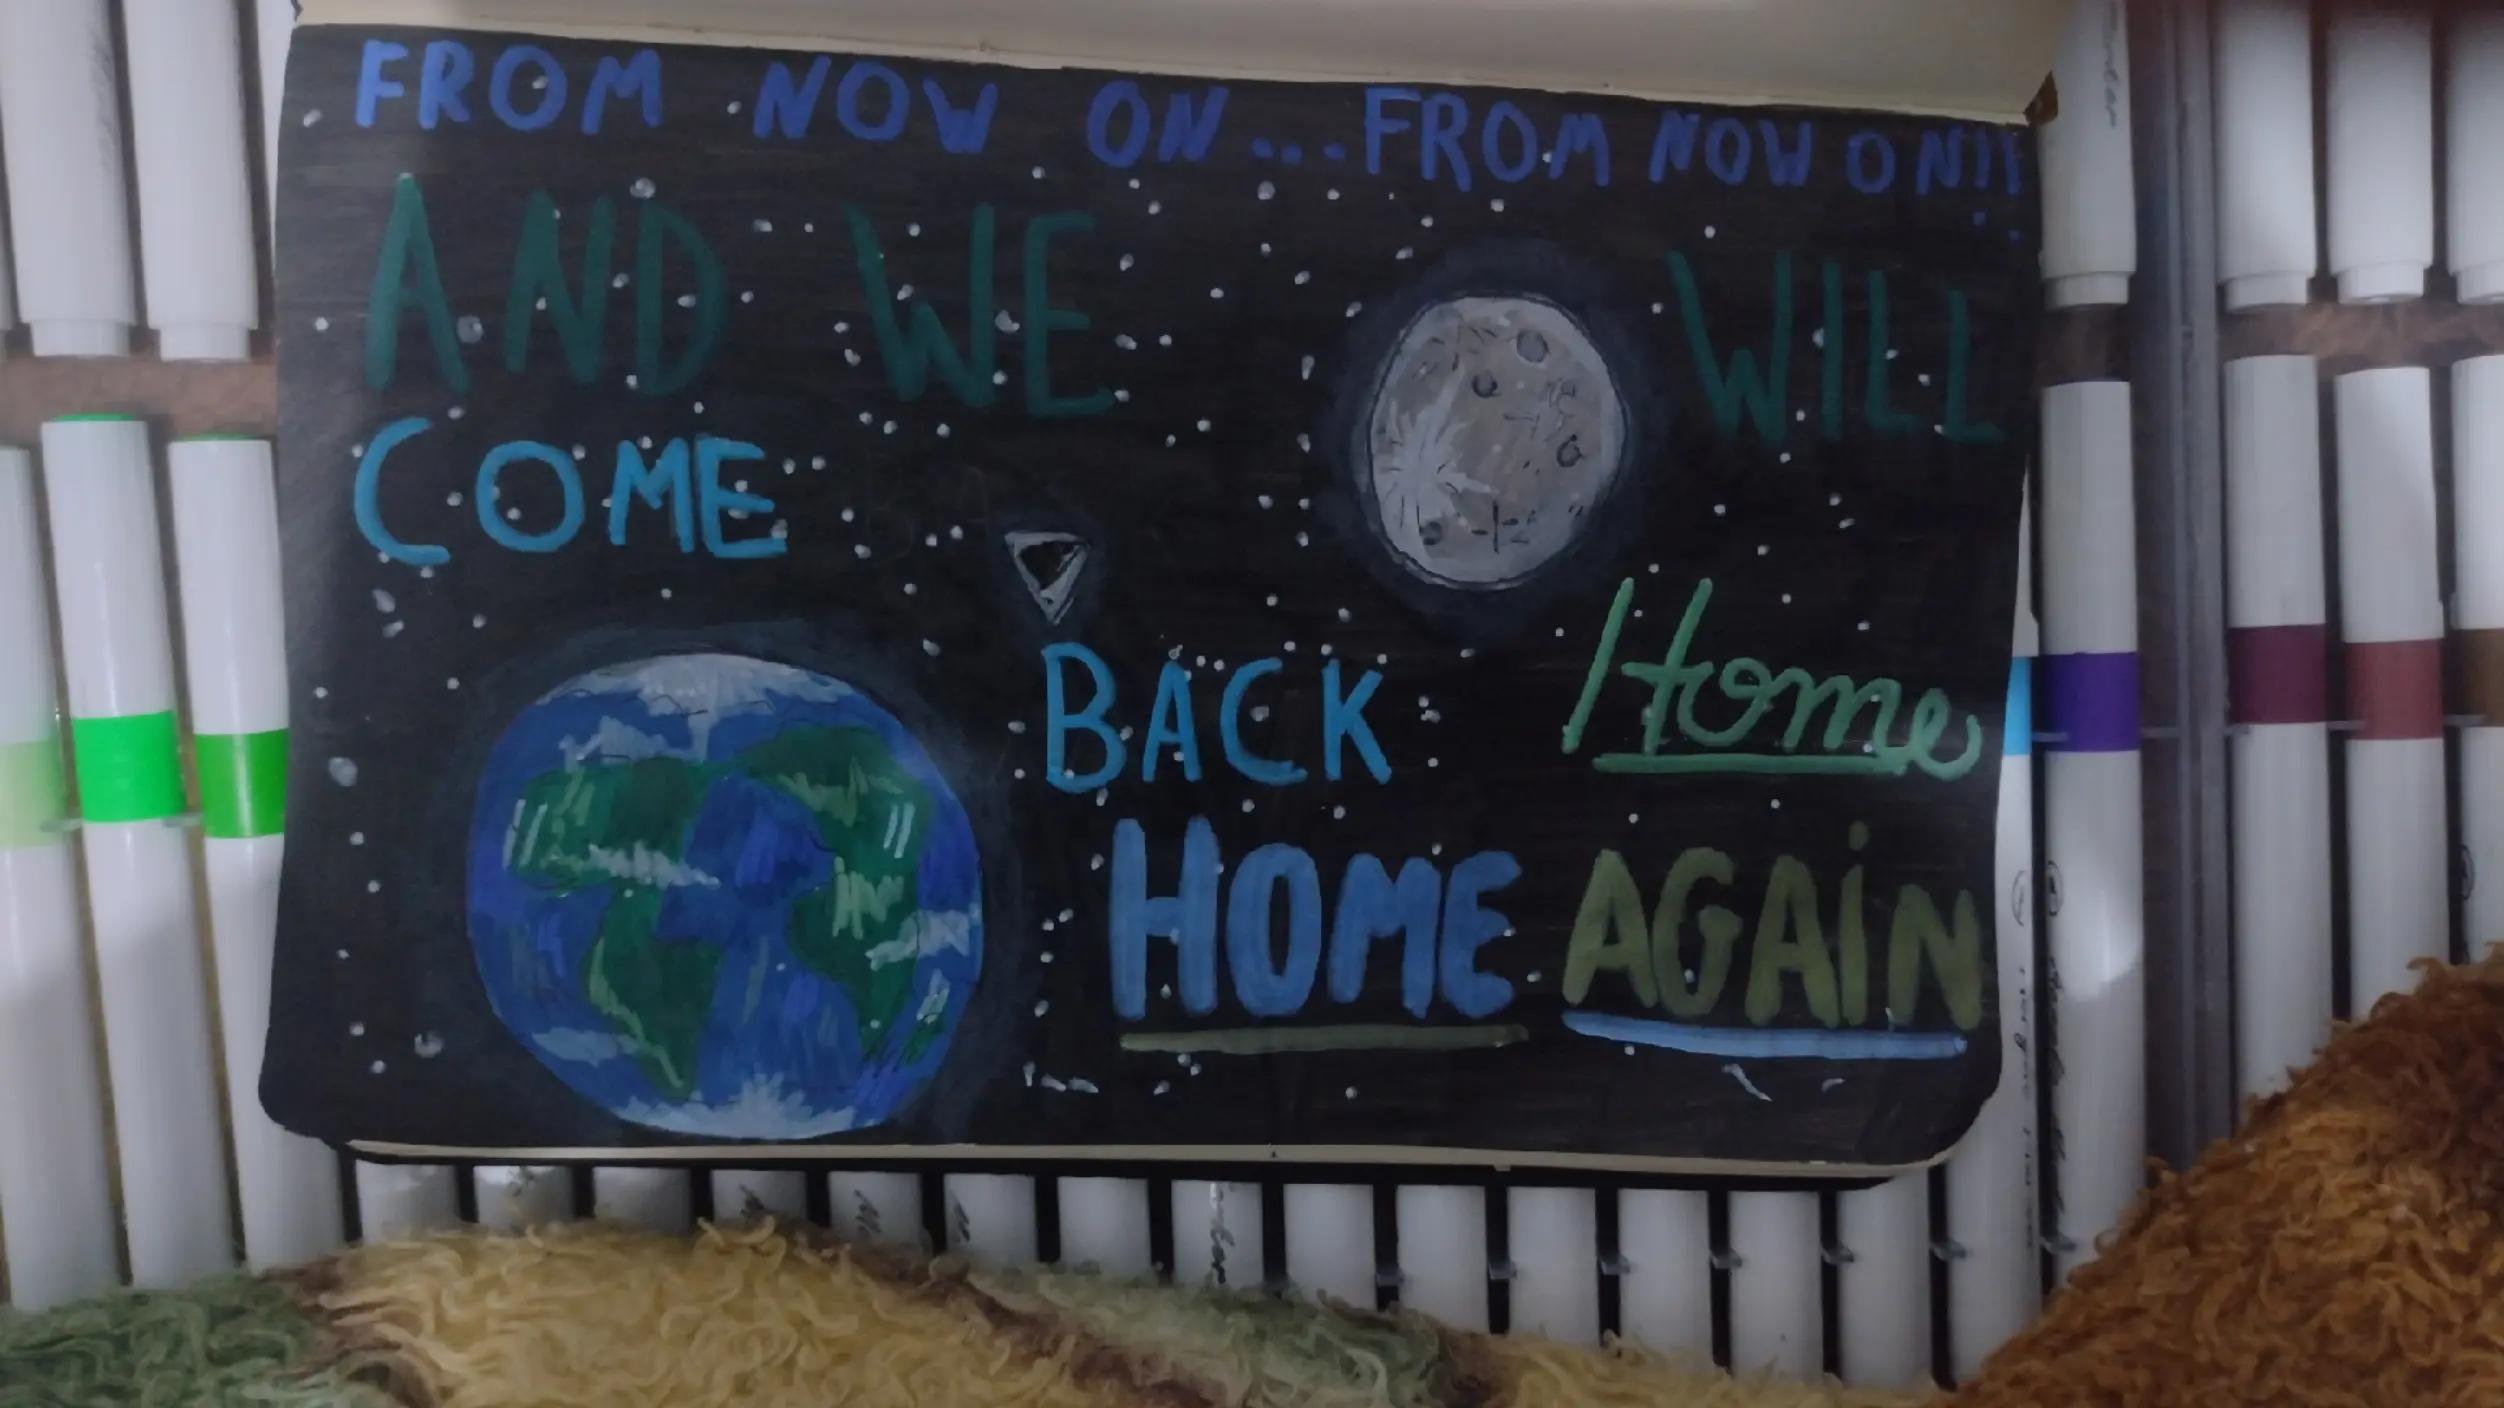 FROM NOW ON...FROM NOW ON!!
AND WE WILL
COME
BACK Home
HOME AGAiN